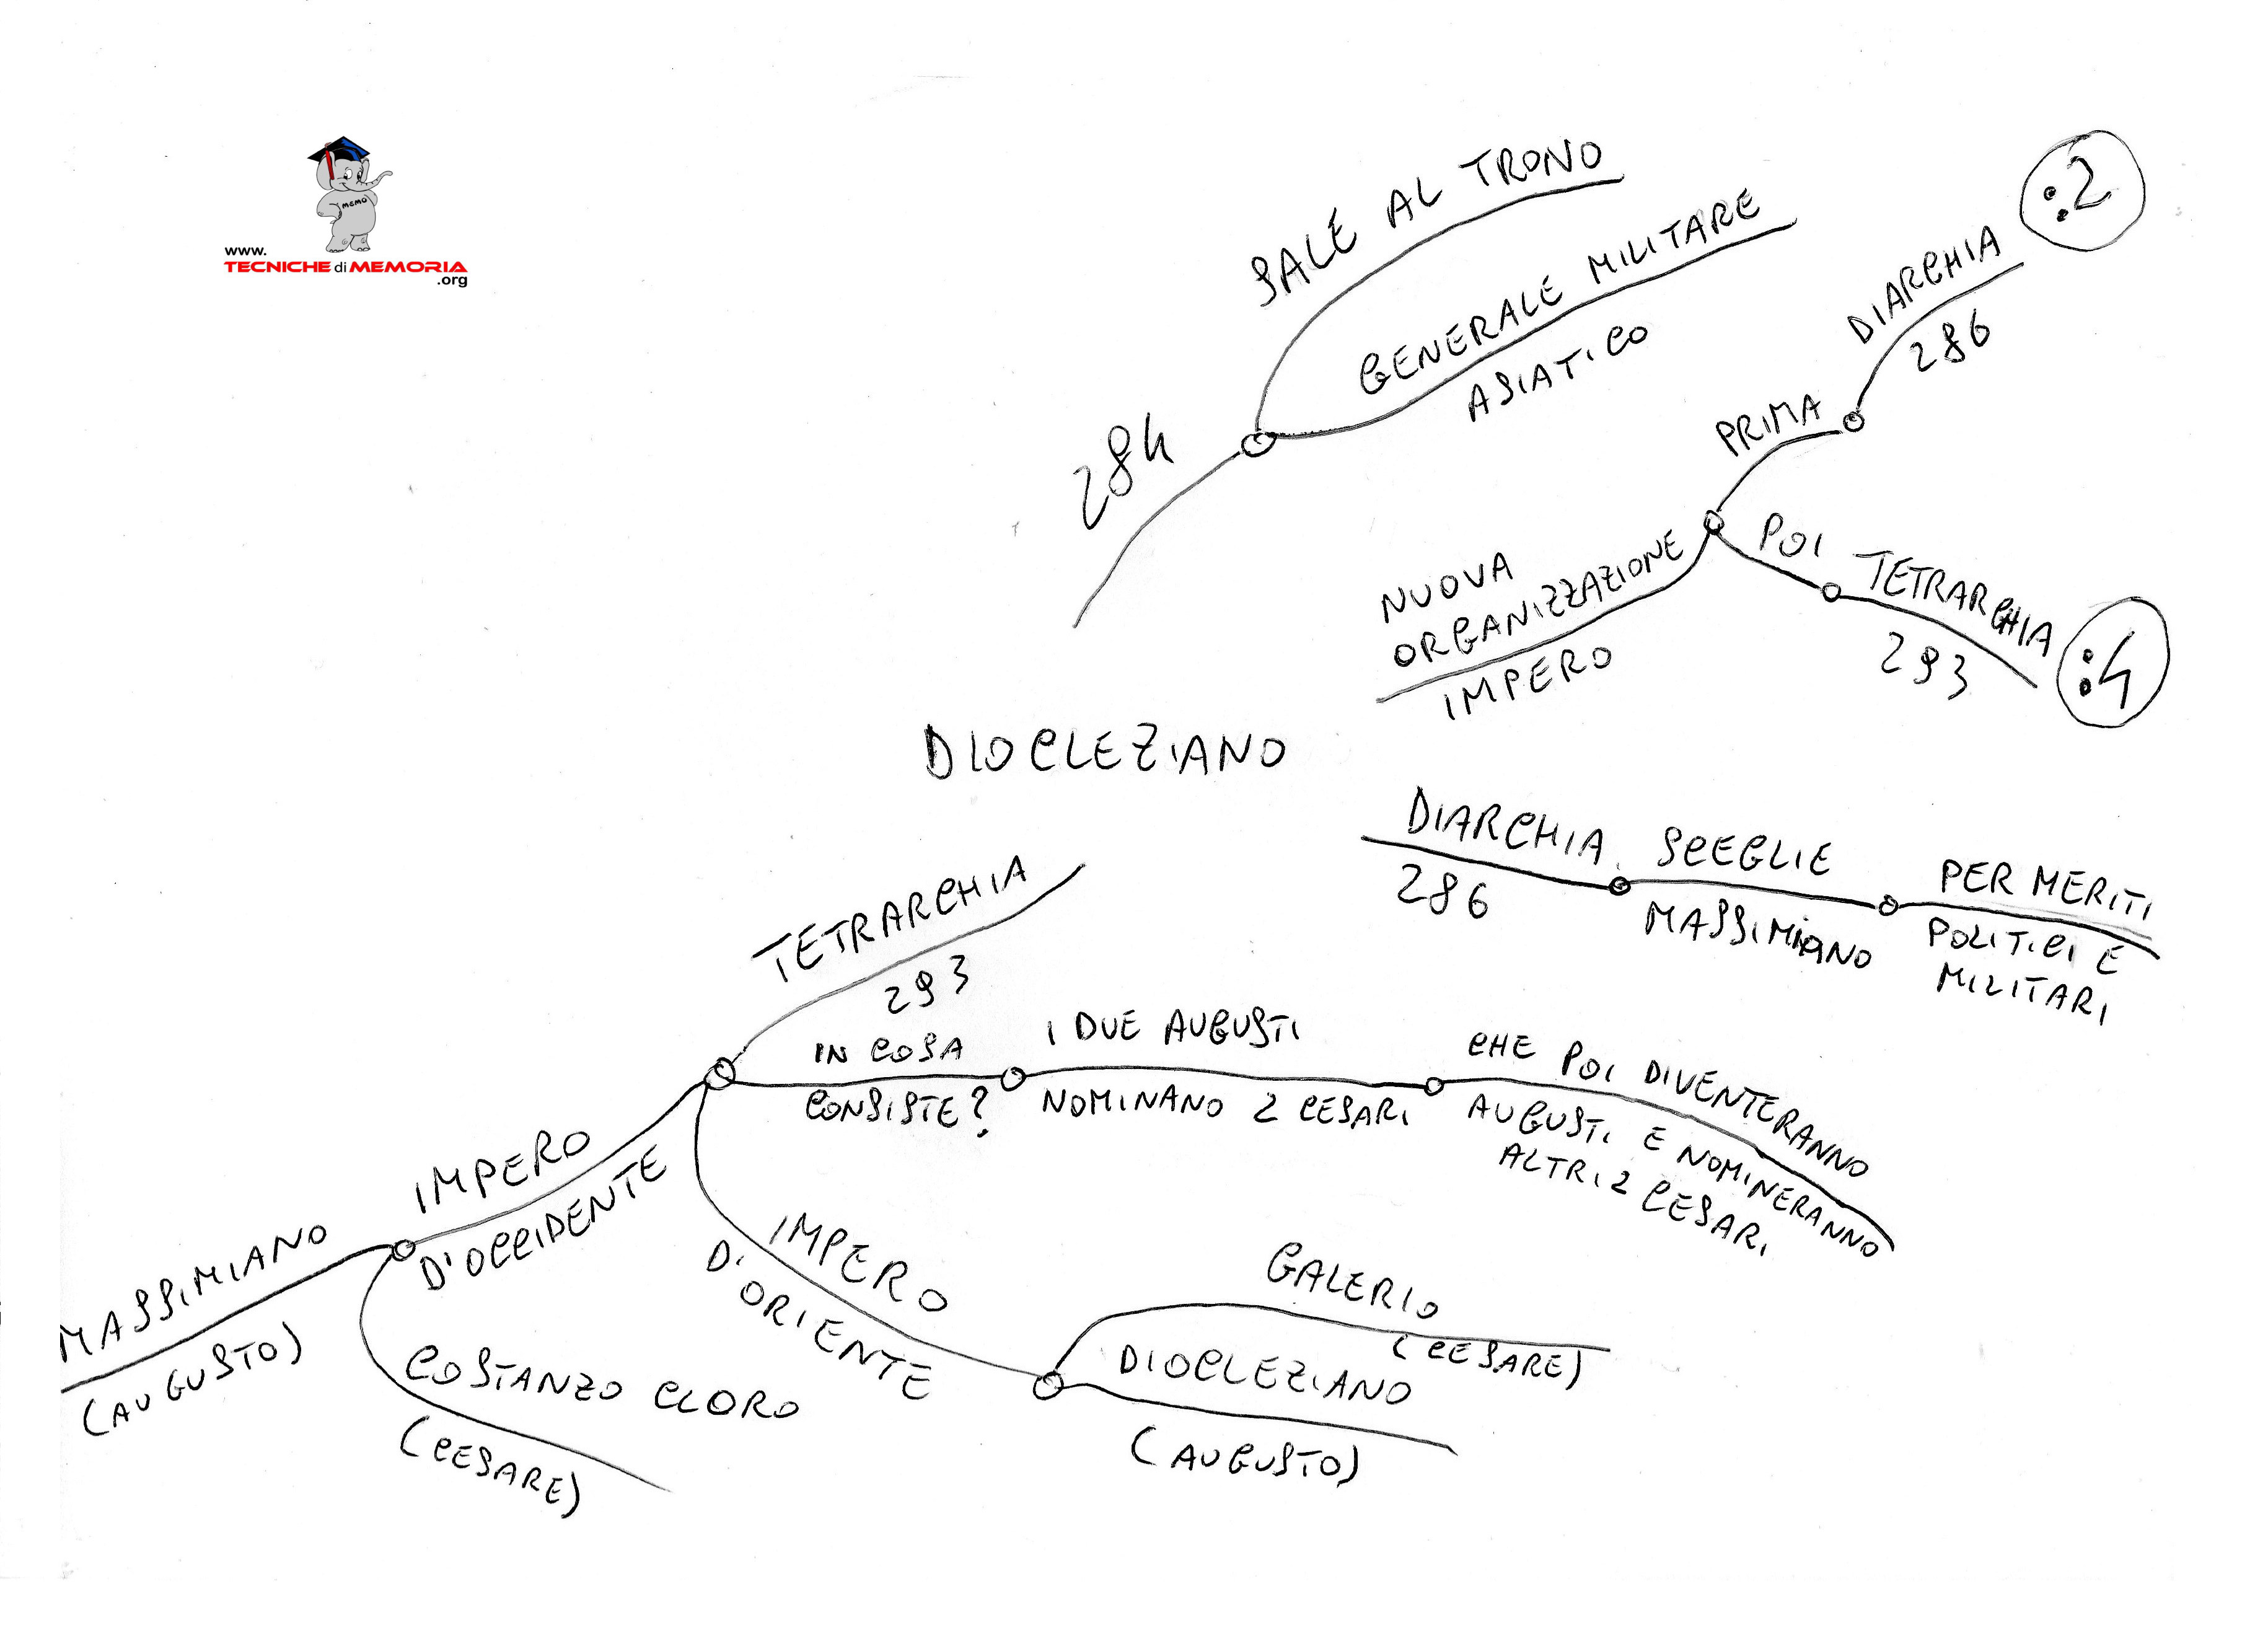 MEMO
www.
TECNICHE di MEMORIA
.org
284
SALE AL TRONO
GENERALE MILITARE
ASIATICO
NUOVA
ORGANIZZAZIONE
IMPERO
PRIMA
DIARCHIA
286
:2
POI
TETRARCHIA
293
:4
DIOCLEZIANO
DIARCHIA
286
SCEGLIE
MASSIMIANO
PER MERITI
POLITICI E
MILITARI
TETRARCHIA
293
IN COSA
CONSISTE?
I DUE AUGUSTI
NOMINANO 2 CESARI
CHE POI DIVENTERANNO
AUGUSTI E NOMINERANNO
ALTRI 2 CESARI
IMPERO
D'ORIENTE
GALERIO
(CESARE)
DIOCLEZIANO
(AUGUSTO)
IMPERO
D'OCCIDENTE
MASSIMIANO
(AUGUSTO)
COSTANZO CLORO
(CESARE)